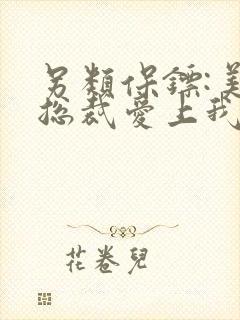 另類保鏢:美
総裁愛上我
花卷兒